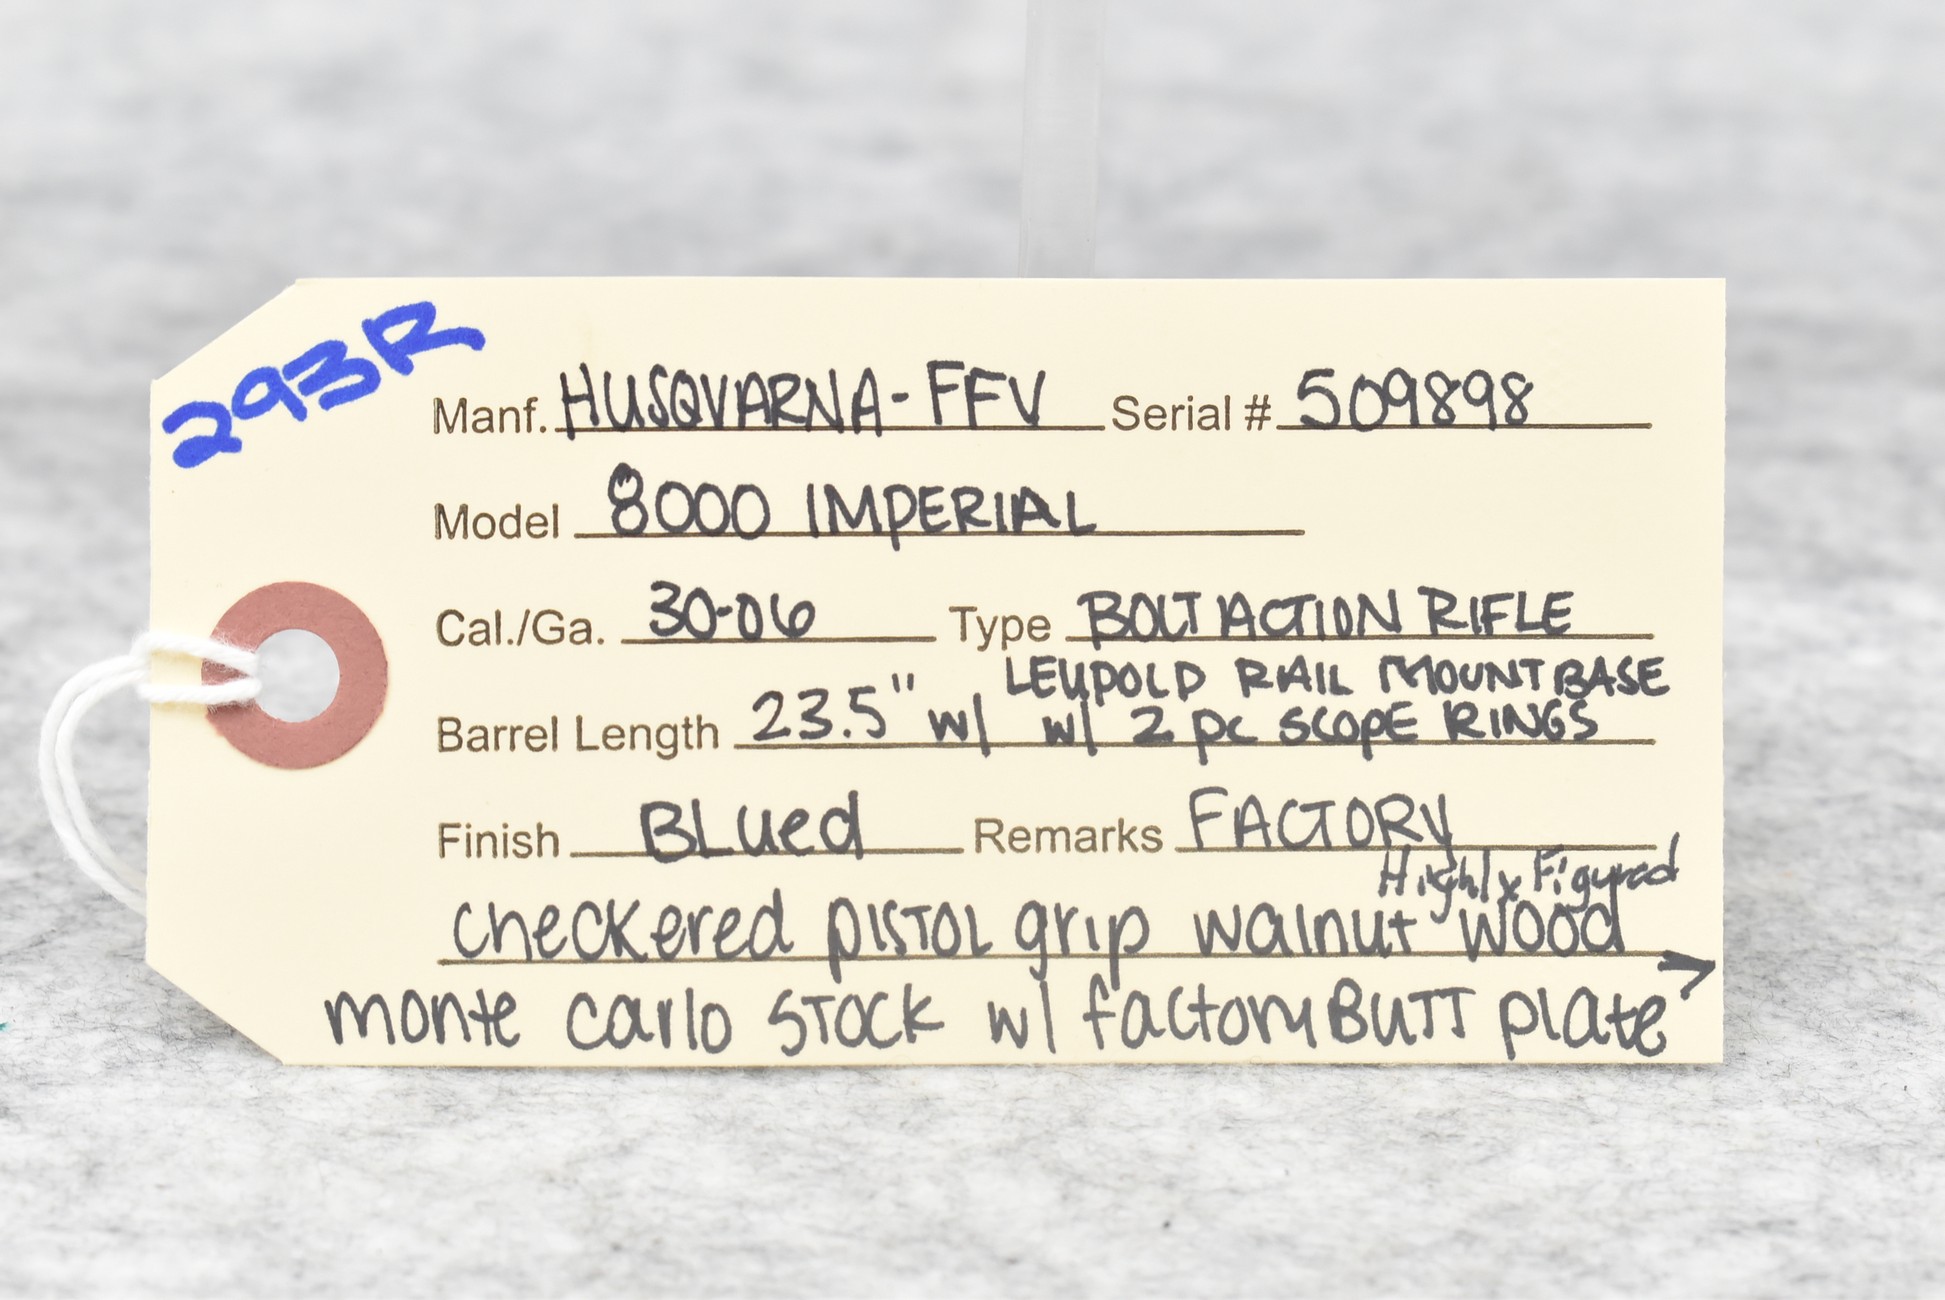 293R
Manf. HUSQVARNA-FFV Serial # 509898
Model 8000 IMPERIAL
Cal./Ga. 30-06 Type BOLT ACTION RIFLE
LEUPOLD RAIL MOUNT BASE
Barrel Length 23.5" w/ w/ 2 pc SCOPE RINGS
Finish BLued Remarks FACTORY
Highly Figured
checkered pistol grip walnut wood
monte carlo stock w/ factory Butt plate →